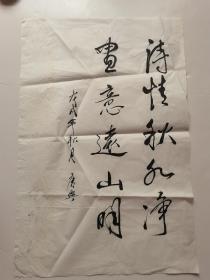 詩情秋水淨
畫意遠山明
戊戌年秋月